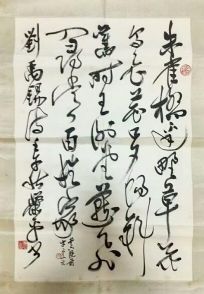 朱雀橋邊野草花
烏衣巷口夕陽斜
舊時王謝堂前燕飛入
尋常百姓家
劉禹錫詩